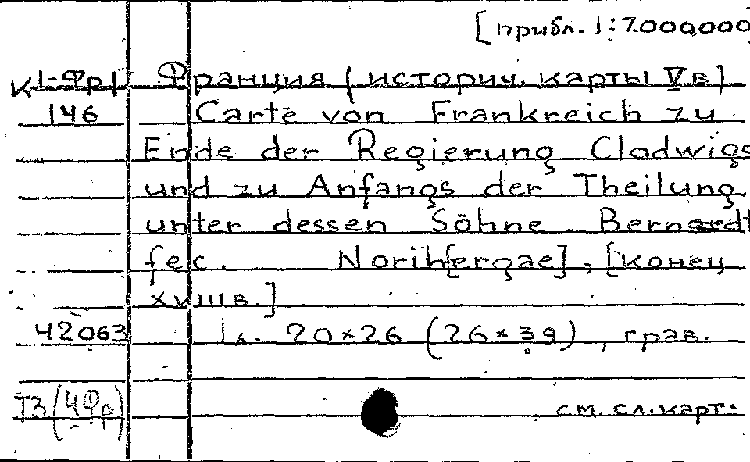 [прибл. 1:7.000.000
К 1-Фр Франция (историч. карты V в)
146 Carte von Frankreich zu
Ende der Regierung Clodwigs
und zu Anfangs der Theilung
unter dessen Söhne. Bernardt
fec. Norih[ergae], [конец
XVIII в.]
42063 1 л. 20×26 (26×39), грав.
Т3 (4Фр) см. сл. карт.